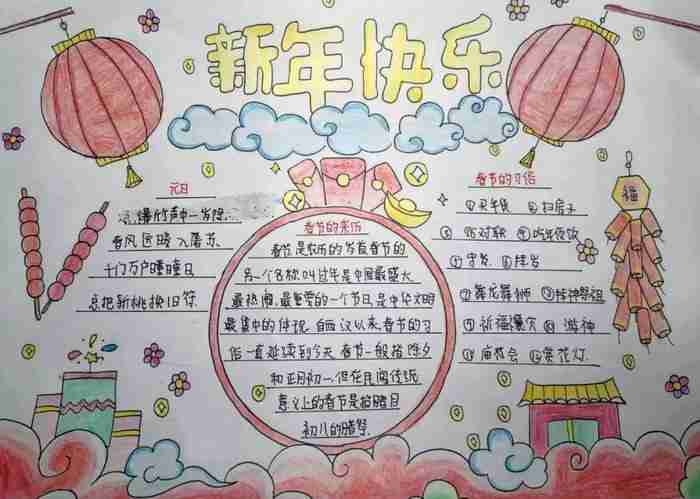 新年快乐
元日
爆竹声中一岁除.
春风送暖入屠苏.
千门万户曈曈日
总把新桃换旧符.
春节的来历
春节是农历的岁首春节的
另一个名称叫过年是中国最盛大
最热闹.最重要的一个节日,是中华文明
最集中的体现.自西汉以来春节的习
俗一直延续到今天 春节一般指除夕
和正月初一.但在民间传统
意义上的春节是指腊月
初八的腊祭.
春节的习俗
①买年货 ②扫房子
③贴对联 ④吃年夜饭
⑤守岁 ⑥拜岁
⑦舞龙舞狮 ⑧拜神祭祖
⑨祈福攘灾 ⑩游神
⑪庙会 ⑫赏花灯
福